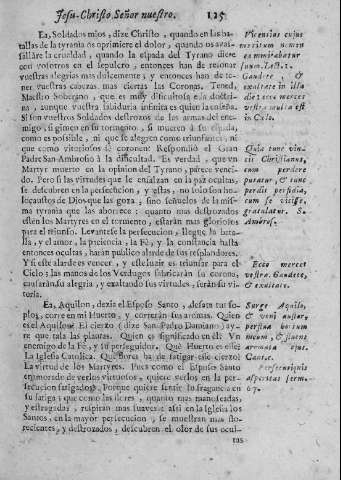 Jesu-Christo Señor nuestro. 125
Ea, Soldados mios, dize Christo, quando en las ba-
tallas de la tyrania os oprimiere el dolor, quando os avas-
sallàre la crueldad, quando la espada del Tyrano diere
con vosotros en el sepulcro, entonces han de reìonar
vuestras alegrias mas dulcemente, y entonces han de te-
ner vuestras cabezas mas ciertas las Coronas. Tened,
Maestro Soberano, que es muy dificultosa
na, aunque vuestra sabiduria infinita es quien la enseña.
Si son vuestros Soldados destrozos de las armas del ene-
migo, si gimen en su tormento, si mueren à su espada,
como es possible, ni que se alegren como triunfantes, ni
que como vitoriosos se coronen? Respondiò el Gran
Padre San Ambrosio à la dificultad. Es verdad, que un
Martyr muerto en la opinion del Tyrano, parece venci-
do. Pero si las virtudes que le ensalzan en la paz ocultas,
se descubren en la persecucion, y estas, no solo son ho-
locaustos de Dios que las goza, sino señuelos de la mis-
ma tyrania que las aborrece: quanto mas destrozados
estèn los Martyres en el tormento, estaràn mas gloriosos
para el triunfo. Levantese la persecucion, llegue la bata-
lla, y el amor, la paciencia, la Fè, y la constancia hasta
entonces ocultas, haràn publico alarde de sus resplandores.
Y si este alarde es vencer, y este luzir es triunfar para el
Cielo; las manos de los Verdugos fabricaràn su corona,
causaràn su alegria, y exaltando sus virtudes, seràn su vi-
toria.
Ea, Aquilon, dezia el Esposo Santo, desata tus so-
plos, corre en mi Huerto, y correràn sus aromas. Quien
es el Aquilon? El cierzo (dize San Pedro Damiano) ay-
re que tala las plantas. Quien es significado en èl? Un
enemigo de la Fè, y su perseguidor. Què Huerto es este?
La Iglesia Catolica. Què flores ha de fatigar este cierzo?
La virtud de los Martyres. Pues como el Esposo Santo
enamorado de verlos virtuosos, quiere verlos en la per-
secucion fatigados? Porque quiere sentir su fragancia en
su fatiga; que como las flores, quanto mas manoseadas,
y estragadas, respiran mas suave: assi en la Iglesia los
Santos, en la mayor persecucion, se muestran mas flo-
recientes, y destrozados, descubren el olor de sus ocul-
tas
Gaudete, &
exultate in illa
die merces
vestra multa est
in Cælo.
Quia tunc vin-
cit Christianus,
cum perdere
putatur, & tunc
perdit perfidia,
cum se vicisse,
gratulatur. S.
Ambros.
Ecce merces
vestra. Gaudete,
& exultate.
Surge Aquilo,
& veni auster,
perfla hortum
meum, & fluent
aromata ejus.
Cantic.
Persecutionis
asperitas serm.
67.